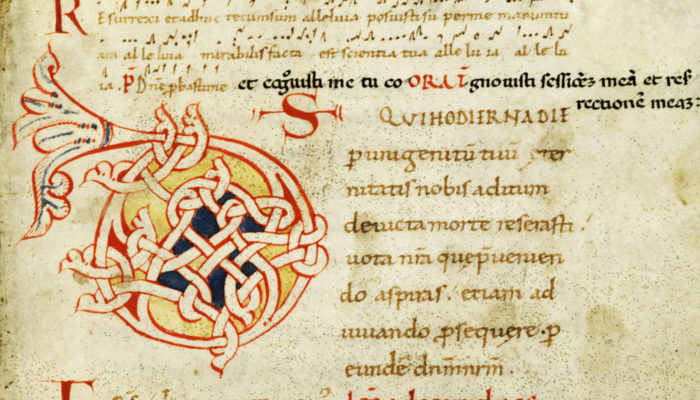 Resurrexi et adhuc tecumsum alleluia posuisti su per me manumtu
am al le luia mirabilis facta est scientia tua alle lu ia al le lu
ia. Dne et me tu co ORAT gnovisti meā et ref
S rectionē meaꝫ:
D QUI HODIERNA DIE
p unigenitū tuū eter
nitatis nobis aditum
devicta morte reserasti.
vota nrā que p̄venien
do aspiras. etiam ad
iuvando ꝓsequere. p
eundē dnm̄ nrm̄.